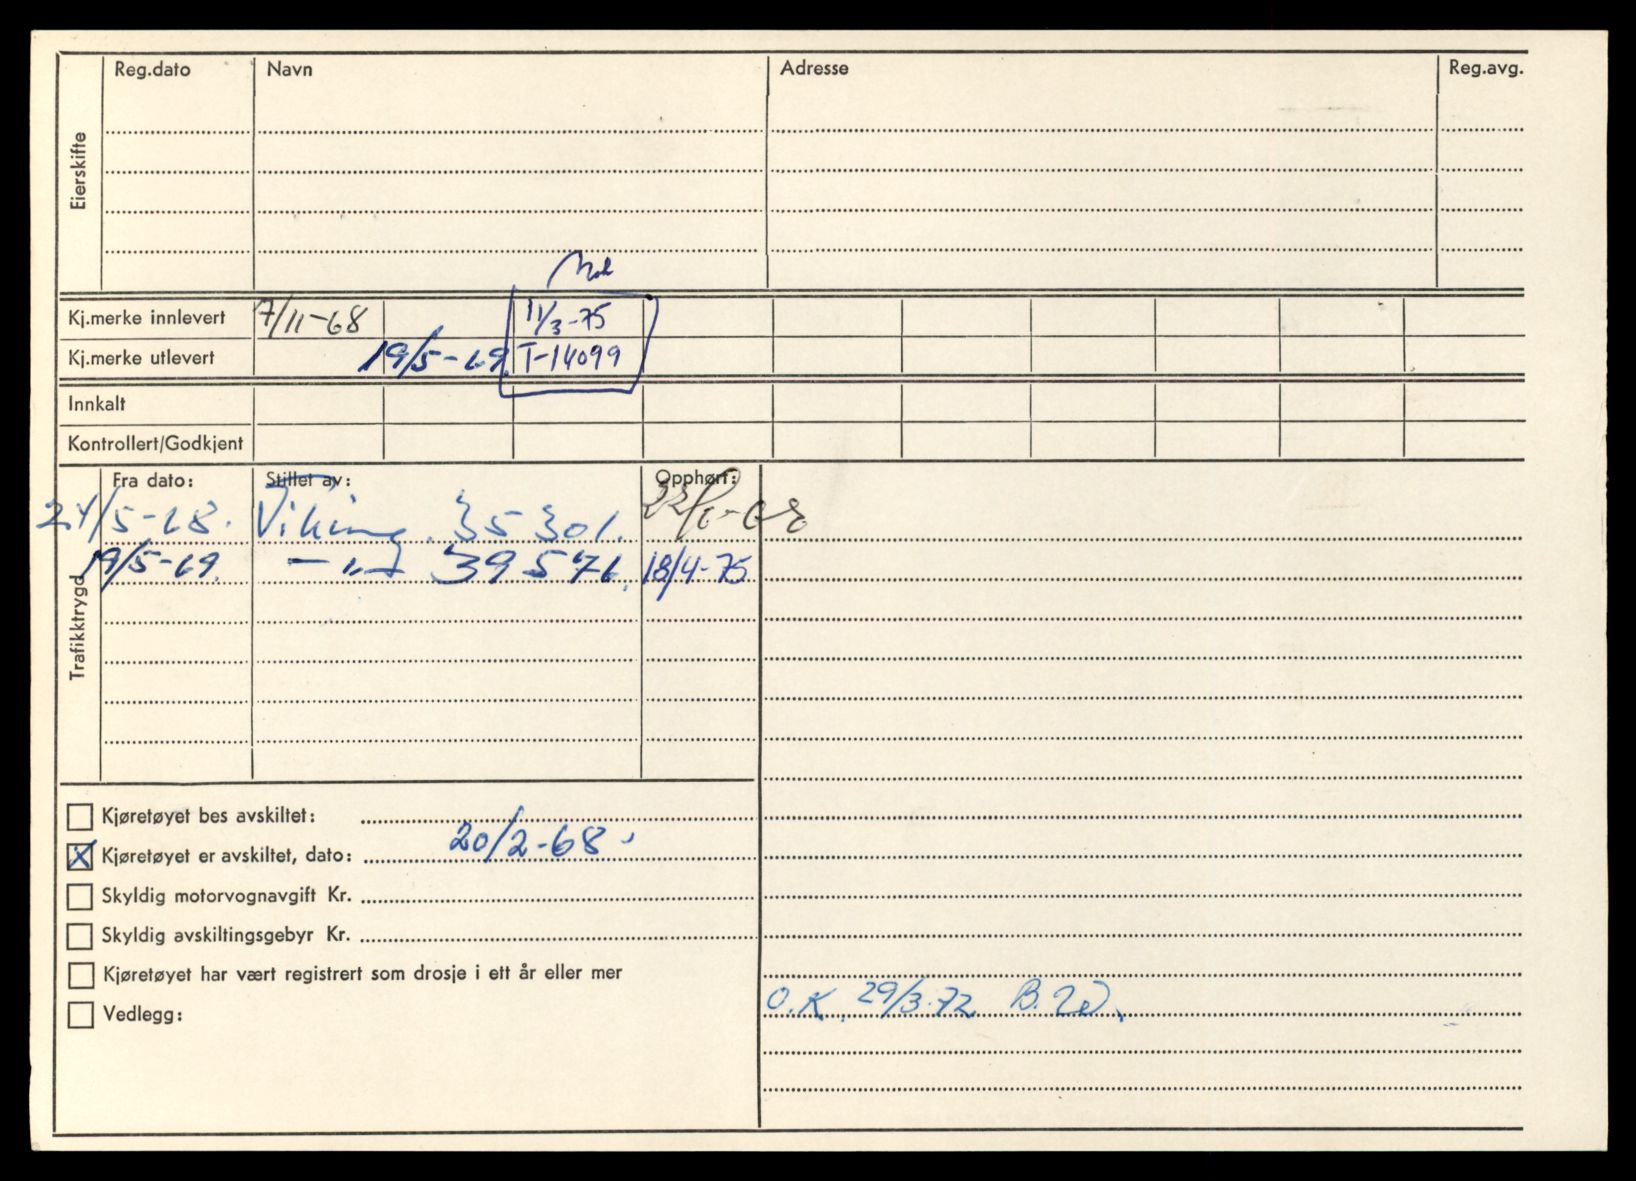 Eierskifte
Reg.dato Navn Adresse Reg.avg.
Kj.merke innlevert 7/11-68 11/3-75
Kj.merke utlevert 19/5-69 T-14099
Innkalt
Kontrollert/Godkjent
Trafikktrygd
Fra dato: Stillet av: Opphørt:
24/5-68. Viking. 35301.
19/5-69. —"— 39571. 18/4-75
Kjøretøyet bes avskiltet:
X Kjøretøyet er avskiltet, dato: 20/2-68
Skyldig motorvognavgift Kr.
Skyldig avskiltingsgebyr Kr.
Kjøretøyet har vært registrert som drosje i ett år eller mer
Vedlegg:
O.K. 29/3-72 B.